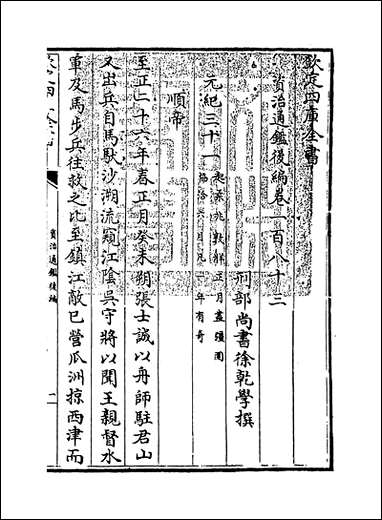 欽定四庫全書
資治通鑑後編卷一百八十三
刑部尚書徐乾學撰
元紀三十一 起柔兆敦牂正月盡彊圉協洽六月凡一年有奇
順帝
至正二十六年春正月癸未朔張士誠以舟師駐君山
又出兵自馬馱沙溯流窺江陰吳守將以聞王親督水
軍及馬步兵往救之比至鎮江敵已營瓜洲掠西津而
資治通鑑後編